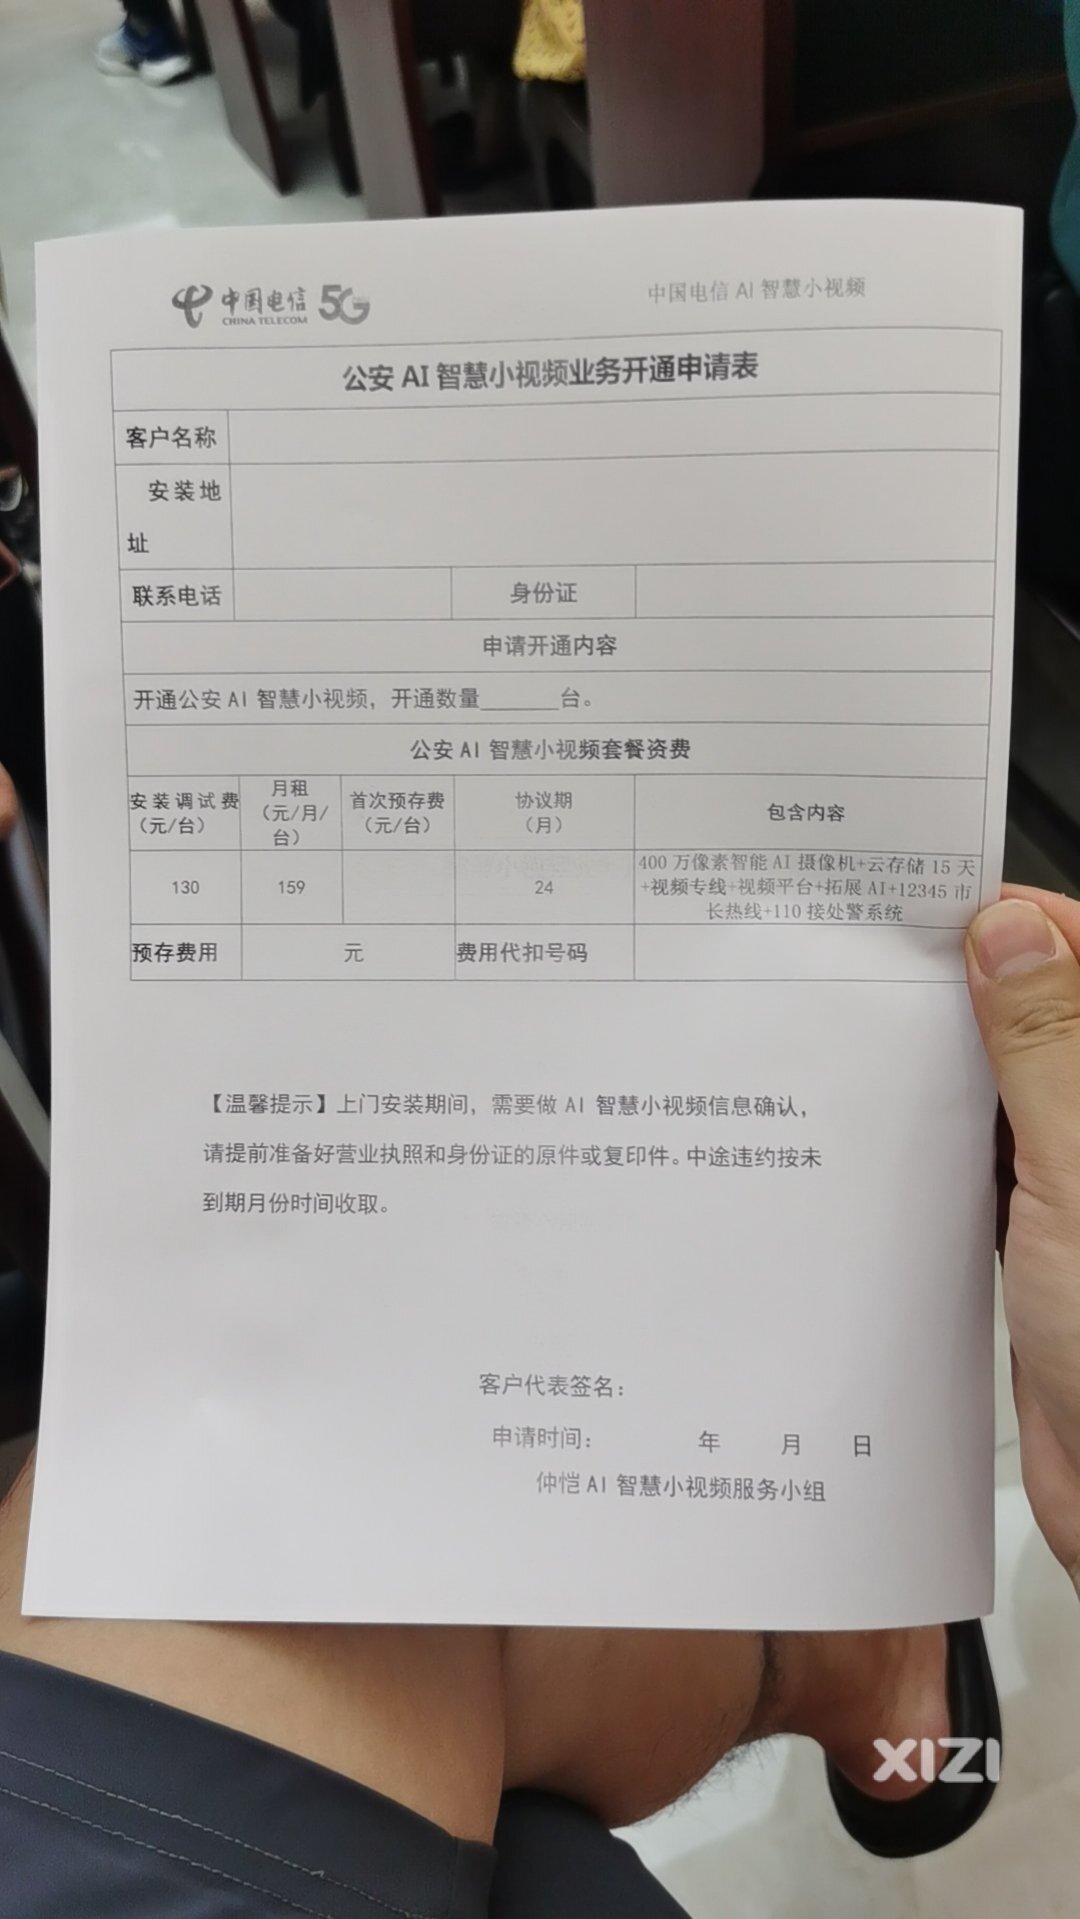 中国电信 5G
CHINA TELECOM
中国电信 AI 智慧小视频
公安 AI 智慧小视频业务开通申请表
客户名称
安装地
址
联系电话 身份证
申请开通内容
开通公安 AI 智慧小视频，开通数量_______台。
公安 AI 智慧小视频套餐资费
安装调试费
（元/台）
月租
（元/月/
台）
首次预存费
（元/台）
协议期
（月）
包含内容
130 159 24
400 万像素智能 AI 摄像机+云存储 15 天
+视频专线+视频平台+拓展 AI+12345 市
长热线+110 接处警系统
预存费用 元 费用代扣号码
【温馨提示】上门安装期间，需要做 AI 智慧小视频信息确认，
请提前准备好营业执照和身份证的原件或复印件。中途违约按未
到期月份时间收取。
客户代表签名：
申请时间： 年 月 日
仲恺 AI 智慧小视频服务小组
XIZI